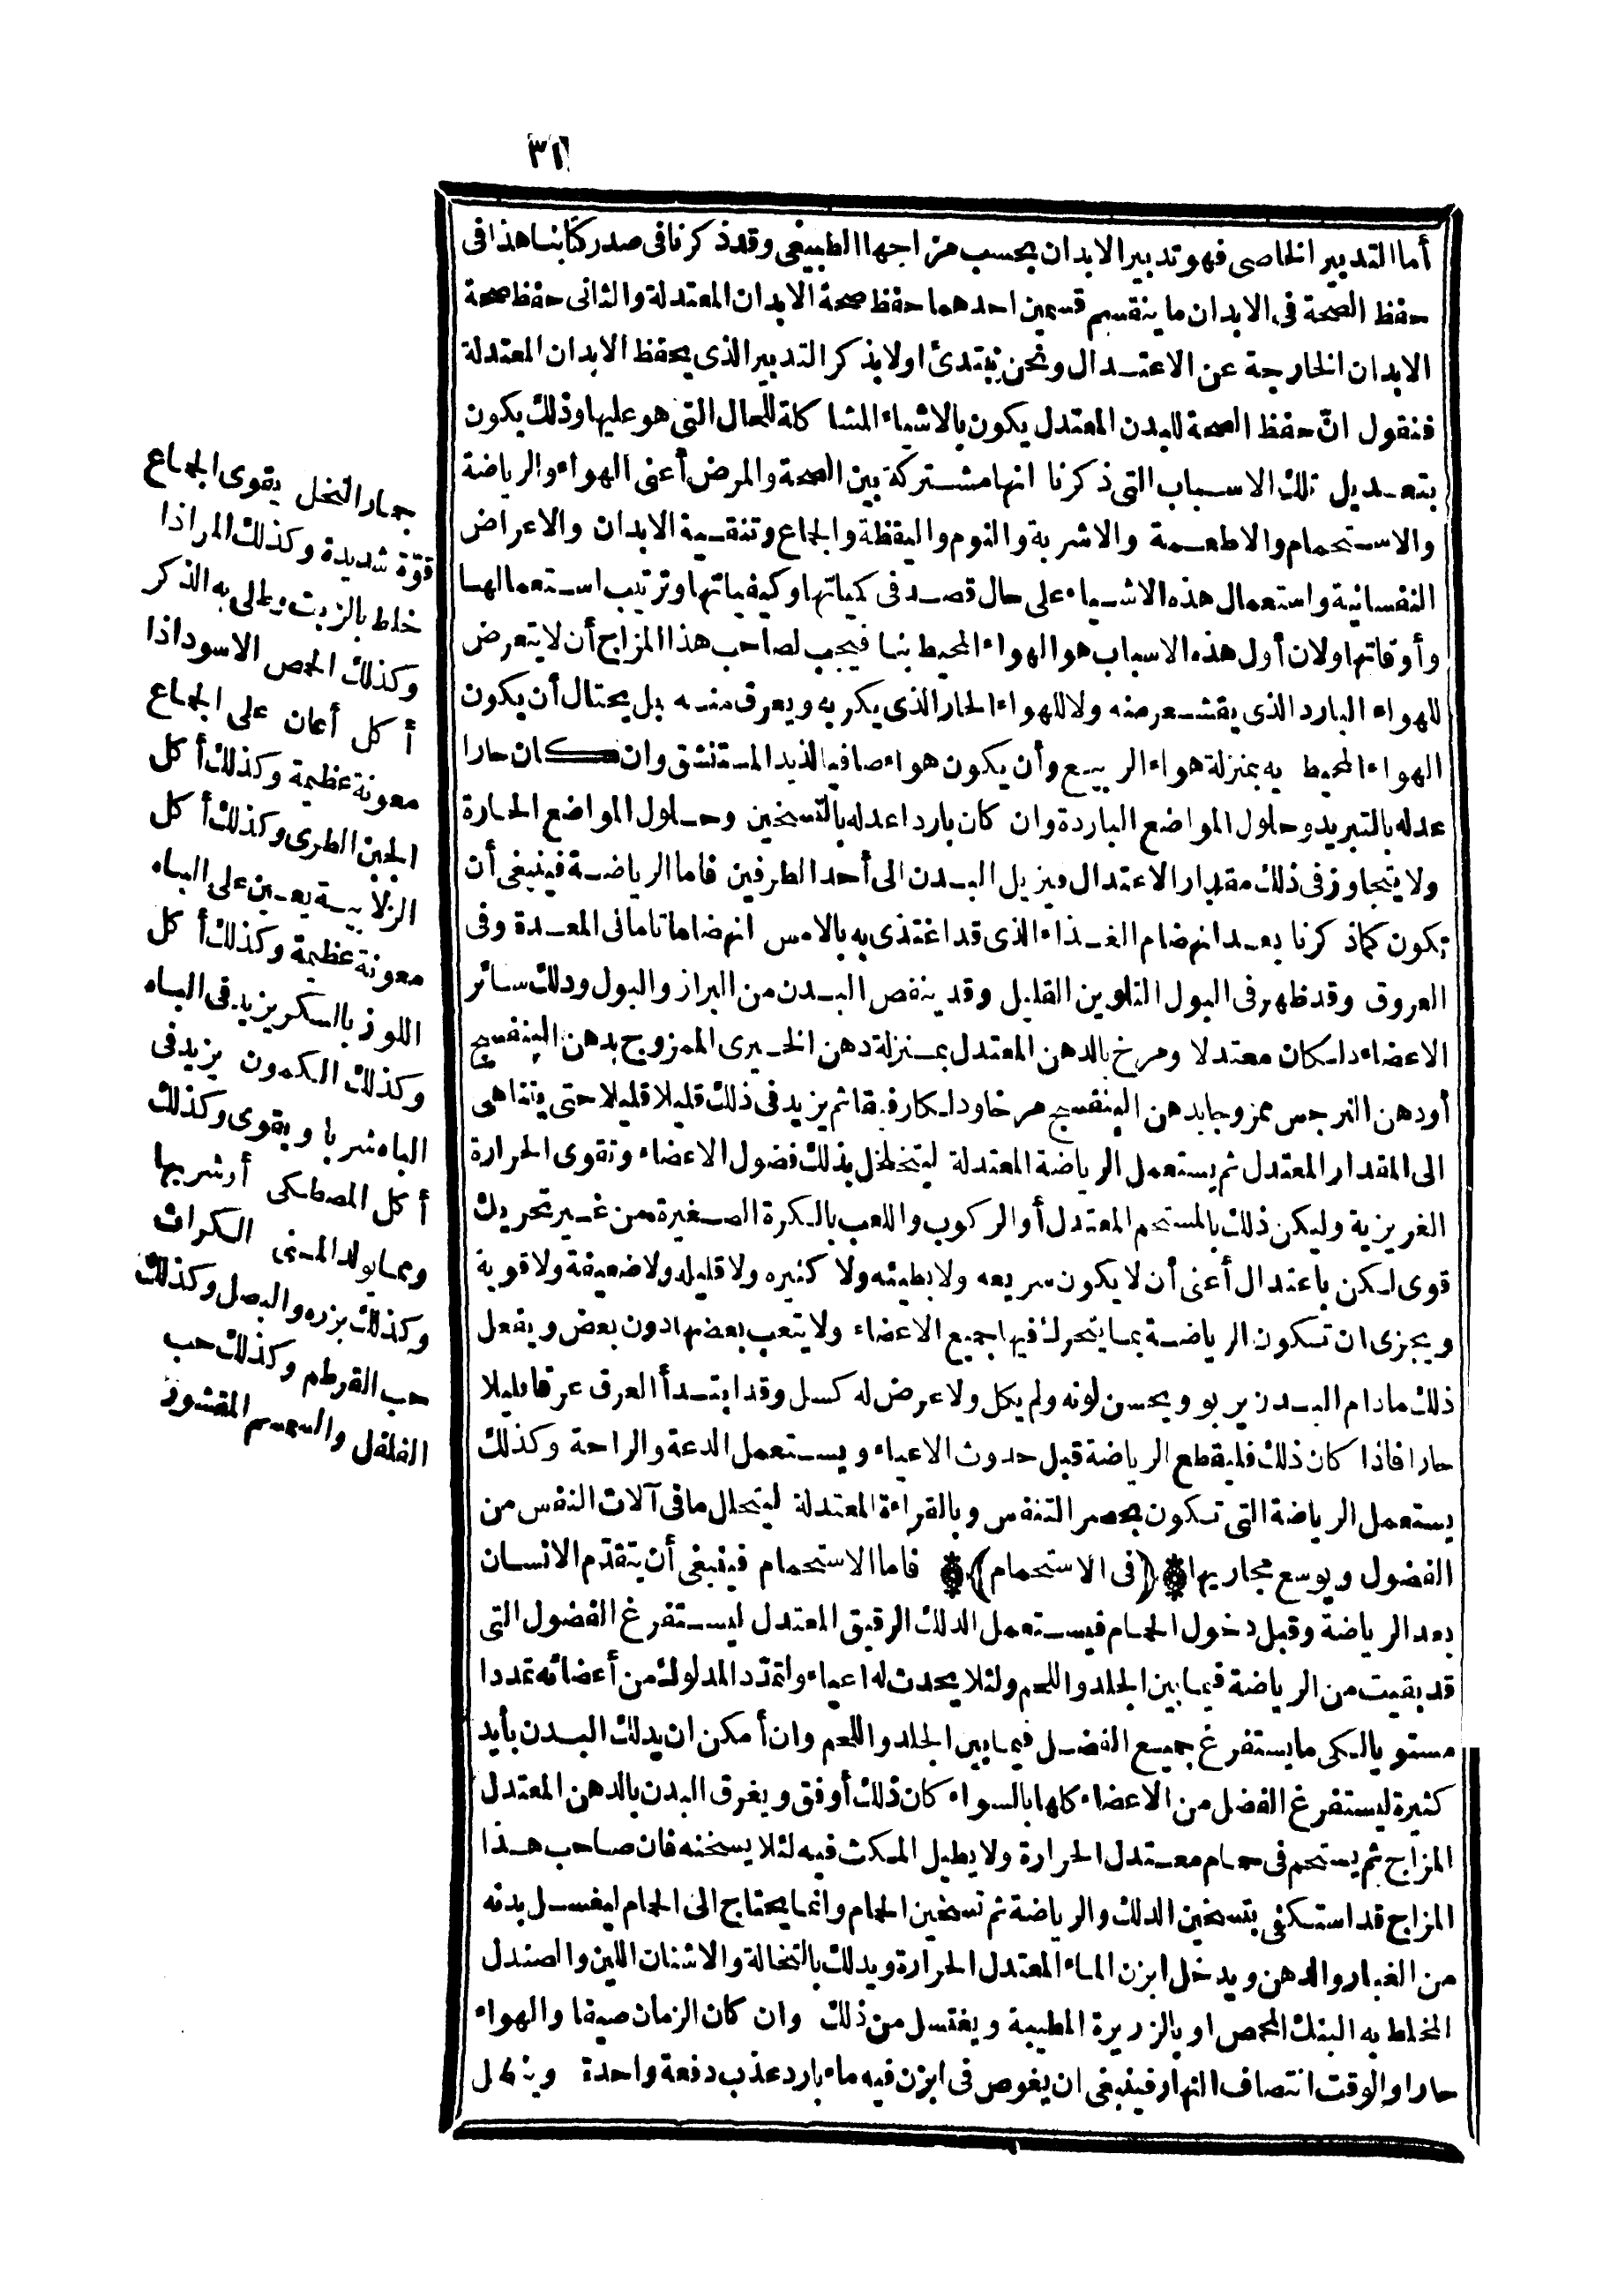 ٣١
أما التدبير الخاصى فهو تدبير الابدان بحسب مزاجها الطبيعى وقد ذكرنا فى صدر كتابنا هذا فى
حفظ الصحة فى الابدان ما ينقسم قسمين احدهما حفظ صحة الابدان المعتدلة والثانى حفظ صحة
الابدان الخارجة عن الاعتدال ونحن نبتدئ اولا بذكر التدبير الذى يحفظ الابدان المعتدلة
فنقول انّ حفظ الصحة للبدن المعتدل يكون بالاشياء المشاكلة للحال التى هو عليها وذلك يكون
بتعديل تلك الاسباب التى ذكرنا انها مشتركة بين الصحة والمرض أعنى الهواء والرياضة
والاستحمام والاطعمة والاشربة والنوم واليقظة والجماع وتنقية الابدان والاعراض
النفسانية واستعمال هذه الاشياء على حال قصد فى كمياتها وكيفياتها وترتيب استعمالها
وأوقاتها ولان أول هذه الاسباب هو الهواء المحيط بنا فيجب لصاحب هذا المزاج أن لا يتعرض
للهواء البارد الذى يقشعر منه ولا للهواء الحار الذى يكربه ويعرق منه بل يحتال أن يكون
الهواء المحيط به بمنزلة هواء الربيع وأن يكون هواء صافيا لذيذ المستنشق وان كان حارا
عدله بالتبريد وحلول المواضع الباردة وان كان باردا عدله بالتسخين وحلول المواضع الحارة
ولا يتجاوز فى ذلك مقدار الاعتدال فيزيل البدن الى أحد الطرفين فاما الرياضة فينبغى أن
تكون كما ذكرنا بعد انهضام الغذاء الذى قد اغتذى به بالامس انهضاما تاما فى المعدة وفى
العروق وقد ظهر فى البول التلوين القليل وقد ينفص البدن من البراز والبول ودلك سائر
الاعضاء دلكان معتدلا ومرخ بالدهن المعتدل بمنزلة دهن الخيرى الممزوج بدهن البنفسج
أودهن النرجس ممزوجا بدهن البنفسج مرخا ودلكا رفيقا ثم يزيد فى ذلك قليلا قليلا حتى يتناهى
الى المقدار المعتدل ثم يستعمل الرياضة المعتدلة ليتخلخل بذلك فضول الاعضاء وتقوى الحرارة
الغريزية وليكن ذلك بالمستحم المعتدل أو الركوب واللعب بالكرة الصغيرة من غير تحريك
قوى لكن باعتدال أعنى أن لا يكون سريعه ولا بطيئه ولا كثيره ولا قليله ولا ضعيفة ولا قوية
ويجزى ان تكون الرياضة بما يتحرك فيها جميع الاعضاء ولا يتعب بعضها دون بعض ويفعل
ذلك مادام البدن يربو ويحسن لونه ولم يكل ولا عرض له كسل وقد ابتدأ العرق عرقا بليلا
حارا فاذا كان ذلك فليقطع الرياضة قبل حدوث الاعياء ويستعمل الدعة والراحة وكذلك
يستعمل الرياضة التى تكون بحصر التنفس وبالقراءة المعتدلة ليتحلل ما فى آلات النفس من
الفضول ويوسع مجاريها (فى الاستحمام) فاما الاستحمام فينبغى أن يتقدّم الانسان
بعد الرياضة وقبل دخول الحمام فيستعمل الدلك الرقيق المعتدل ليستفرغ الفضول التى
قد بقيت من الرياضة فيما بين الجلد واللحم ولئلا يحدث له اعياء ولتمدّد المدلوك من أعضائه تمددا
مستويا لكى ما يستفرغ جميع الفضل فيما بين الجلد واللحم وان أمكن ان يدلك البدن بأيد
كثيرة ليستفرغ الفضل من الاعضاء كلها بالسواء كان ذلك أوفق ويغرق البدن بالدهن المعتدل
المزاج ثم يستحم فى حمام معتدل الحرارة ولا يطيل المكث فيه لئلا يسخنه فان صاحب هذا
المزاج قد استكفى بتسخين الدلك والرياضة ثم تسخين الحمام وانما يحتاج الى الحمام ليغسل بدنه
من الغبار والدهن ويدخل ابزن الماء المعتدل الحرارة ويدلك بالنخالة والاشنان اللين والصندل
المخلط به البنك المحمص او بالزريرة المطيبة ويغتسل من ذلك وان كان الزمان صيفا والهواء
حارا والوقت انتصاف النهار فينبغى ان يغوص فى ابزن فيه ماء بارد عذب دفعة واحدة
جمار النخل يقوى الجماع
قوّة شديدة وكذلك المر اذا
خلط بالزيت وطلى به الذكر
وكذلك الحمص الاسود اذا
أكل أعان على الجماع
معونة عظيمة وكذلك أكل
الجبن الطرى وكذلك أكل
الزلابية يعين على الباه
معونة عظيمة وكذلك أكل
اللوز بالسكر يزيد فى الباه
وكذلك الكمون يزيد فى
الباه شربا ويقوى وكذلك
أكل المصطكى أو شربها
ومما يولد المنى الكراث
وكذلك بزره والبصل وكذلك
حب القرطم وكذلك حب
الفلفل والسمسم المقشور